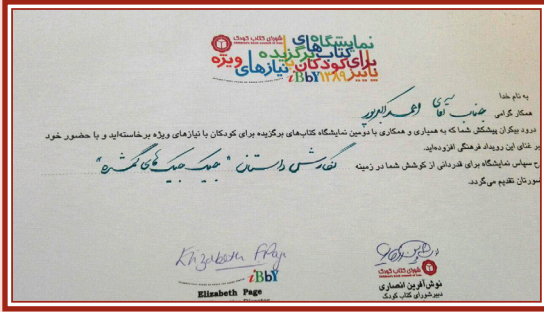 شورای کتاب کودک
نمایشگاه
کتاب‌های برگزیده
برای کودکان با نیازهای ویژه
پاییز ۱۳۸۹ iBbY
به نام خدا
همکار گرامی جناب آقای احمد اکبرپور
درود بیکران پیشکش شما که به همیاری و همکاری با دومین نمایشگاه کتاب‌های برگزیده برای کودکان با نیازهای ویژه برخاسته‌اید و با حضور خود
بر غنای این رویداد فرهنگی افزوده‌اید.
ح سپاس نمایشگاه برای قدردانی از کوشش شما در زمینه نگارش داستان "جیک جیک های گمشده"
سورتان تقدیم می‌گردد.
iBbY
Elisabeth Page
شورای کتاب کودک
نوش‌آفرین انصاری
دبیر شورای کتاب کودک